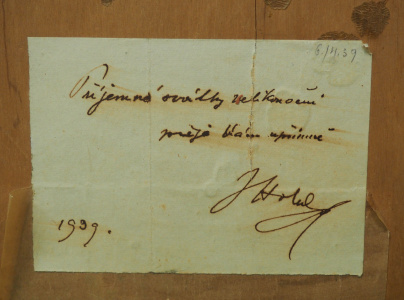 6/4.39
Příjemné svátky velikonoční
přeje Vám upřímně
1939.